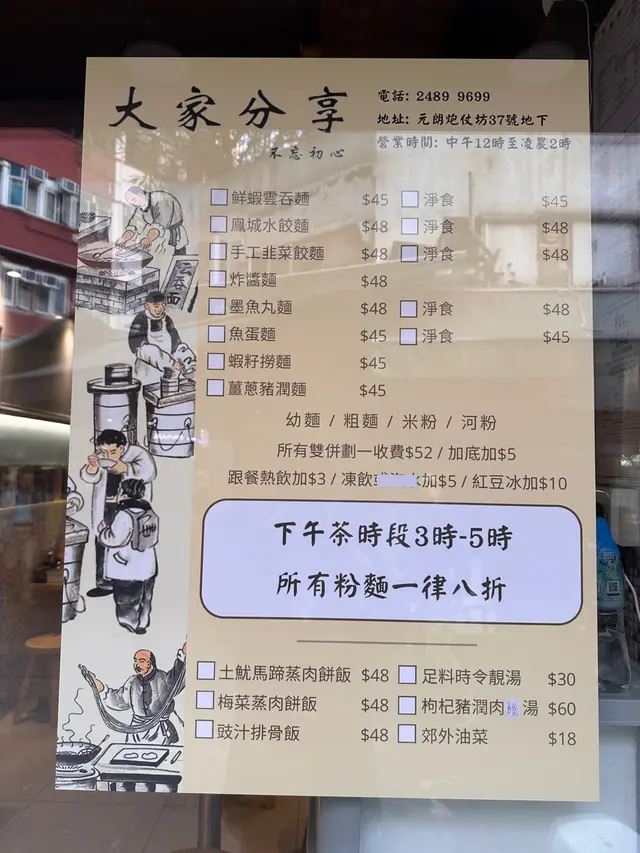 大家分享
不忘初心
電話: 2489 9699
地址: 元朗炮仗坊37號地下
營業時間: 中午12時至凌晨2時
鮮蝦雲吞麵 $45 淨食 $45
鳳城水餃麵 $48 淨食 $48
手工韭菜餃麵 $48 淨食 $48
炸醬麵 $48
墨魚丸麵 $48 淨食 $48
魚蛋麵 $45 淨食 $45
蝦籽撈麵 $45
薑蔥豬潤麵 $45
幼麵 / 粗麵 / 米粉 / 河粉
所有雙併劃一收費$52 / 加底加$5
跟餐熱飲加$3 / 凍飲 加$5 / 紅豆冰加$10
下午茶時段3時-5時
所有粉麵一律八折
土魷馬蹄蒸肉餅飯 $48 足料時令靚湯 $30
梅菜蒸肉餅飯 $48 枸杞豬潤肉 湯 $60
豉汁排骨飯 $48 郊外油菜 $18
云吞面